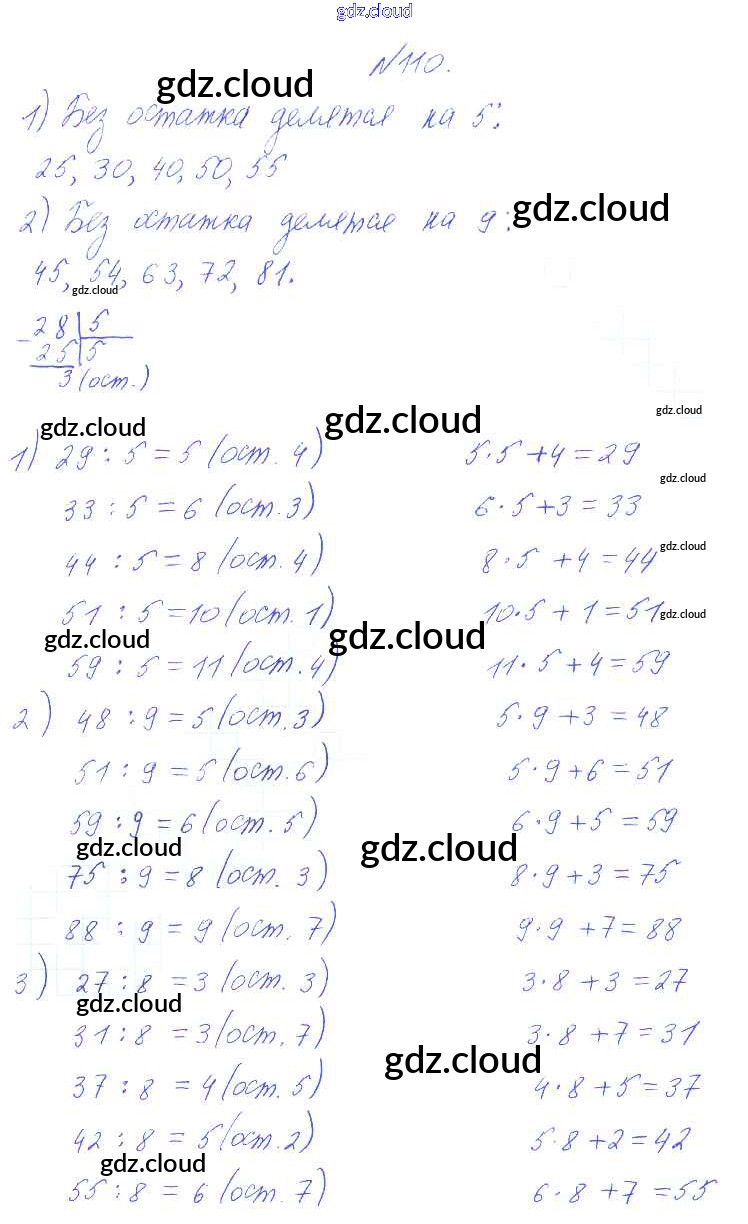 gdz.cloud
№110.
gdz.cloud
1) Без остатка делятся на 5:
25, 30, 40, 50, 55
gdz.cloud
2) Без остатка делятся на 9:
45, 54, 63, 72, 81.
gdz.cloud
- 28 | 5
25 | 5
3 (ост.)
gdz.cloud gdz.cloud gdz.cloud
1) 29 : 5 = 5 (ост. 4) 5·5 + 4 = 29
gdz.cloud
33 : 5 = 6 (ост. 3) 6·5 + 3 = 33
44 : 5 = 8 (ост. 4) 8·5 + 4 = 44 gdz.cloud
51 : 5 = 10 (ост. 1) 10·5 + 1 = 51 gdz.cloud
gdz.cloud gdz.cloud
59 : 5 = 11 (ост. 4) 11·5 + 4 = 59
2) 48 : 9 = 5 (ост. 3) 5·9 + 3 = 48
51 : 9 = 5 (ост. 6) 5·9 + 6 = 51
59 : 9 = 6 (ост. 5) 6·9 + 5 = 59
gdz.cloud gdz.cloud
75 : 9 = 8 (ост. 3) 8·9 + 3 = 75
88 : 9 = 9 (ост. 7) 9·9 + 7 = 88
3) 27 : 8 = 3 (ост. 3) 3·8 + 3 = 27
gdz.cloud
31 : 8 = 3 (ост. 7) 3·8 + 7 = 31
gdz.cloud
37 : 8 = 4 (ост. 5) 4·8 + 5 = 37
42 : 8 = 5 (ост. 2) 5·8 + 2 = 42
gdz.cloud
55 : 8 = 6 (ост. 7) 6·8 + 7 = 55